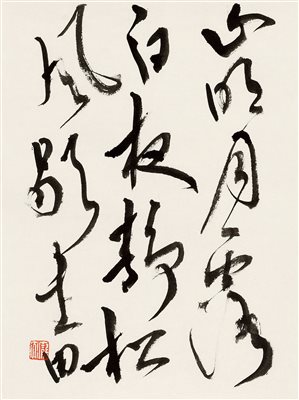 山明月露
白夜静松
风歇田